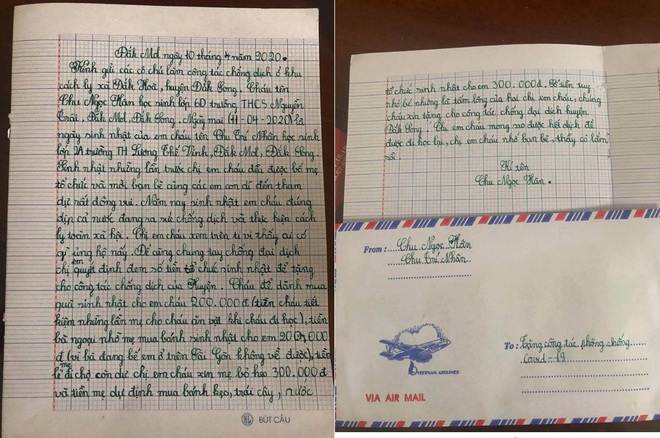 Đăk Mol ngày 10 tháng 4 năm 2020.
Kính gửi các cô chú làm công tác chống dịch ở khu
cách ly xã Đăk Hoà, huyện Đăk Song. Cháu tên
Chu Ngọc Hân học sinh lớp 6D trường THCS Nguyễn
Trãi, Đăk Mol, Đăk Song. Ngày mai (11-04-2020) là
ngày sinh nhật của em cháu tên Chu Trí Nhân học sinh
lớp 2A trường TH Lương Thế Vinh, Đăk Mol, Đăk Song.
Sinh nhật những lần trước chị em cháu đều được bố mẹ
tổ chức và mời bạn bè cùng các em con dì đến tham
dự rất đông vui. Năm nay sinh nhật em cháu đúng
dịp cả nước đang ra sức chống dịch và thực hiện cách
ly toàn xã hội. Chị em cháu xem trên ti vi thấy ai có
gì ủng hộ nấy. Để cùng chung tay chống đại dịch
chị em quyết định đem số tiền tổ chức sinh nhật để tặng
cho công tác chống dịch của Huyện. Cháu để dành mua
quà sinh nhật cho em cháu 200.000đ (tiền cháu tiết
kiệm những lần mẹ cho cháu ăn vặt khi cháu đi học), tiền
bà ngoại nhờ mẹ mua bánh sinh nhật cho em 200,000
đ (vì bà đang bế em ở trên Sài Gòn không về được), tiền
lẻ mẹ đi chợ còn dư chị em cháu xin mẹ bỏ heo 300.000đ
và tiền mẹ dự định mua bánh kẹo, trái cây, nước
HL BÚT CÂU
tổ chức sinh nhật cho em 300.000đ. Số tiền tuy
nhỏ bé nhưng là tấm lòng của hai chị em cháu, chúng
cháu xin tặng cho công tác chống đại dịch huyện
Đăk Song. Chị em cháu mong sao được hết dịch để
được đi học lại, chị em cháu nhớ bạn bè, thầy cô lắm
rồi.
Kí tên
Chu Ngọc Hân.
From: Chu Ngọc Hân
Chu Trí Nhân.
VIETNAM AIRLINES
To: Tặng công tác phòng chống
Covid-19
VIA AIR MAIL